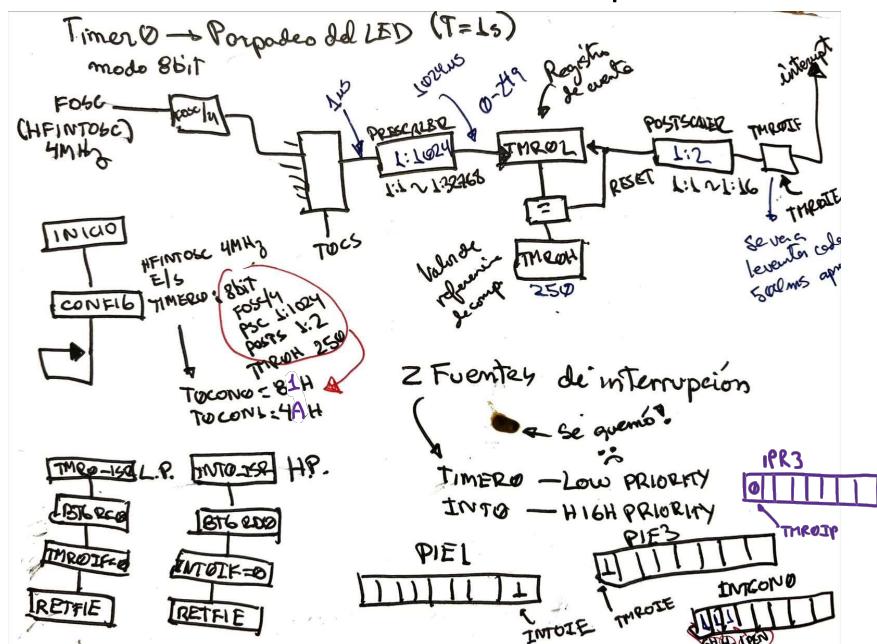 Timer0 → Parpadeo del LED (T=1s)
modo 8bit
FOSC
(HFINTOSC)
4MHz
FOSC/4
T0CS
1us
PRESCALER
1:1024
1:1 ~ 1:32768
1024us
0-249
Registro
de cuenta
TMR0L
=
TMR0H
250
Valor de
referencia
de comp.
RESET
POSTSCALER
1:2
1:1 ~ 1:16
TMR0IF
interrupt
TMR0IE
Se va a
levantar cada
500ms
INICIO
CONFIG
HFINTOSC 4MHz
E/S
TIMER0: 8bit
FOSC/4
PSC 1:1024
POSTS 1:2
TMR0H 250
T0CON0=81H
T0CON1=4AH
2 Fuentes de interrupción
Se quemó!
TIMER0 — LOW PRIORITY
INT0 — HIGH PRIORITY
IPR3
0
TMR0IP
TMR0_ISR L.P.
BTG RC0
TMR0IF=0
RETFIE
INT0_ISR H.P.
BTG RD0
INT0IF=0
RETFIE
PIE1
1
INT0IE
PIE3
1
TMR0IE
INTCON0
1 1 1